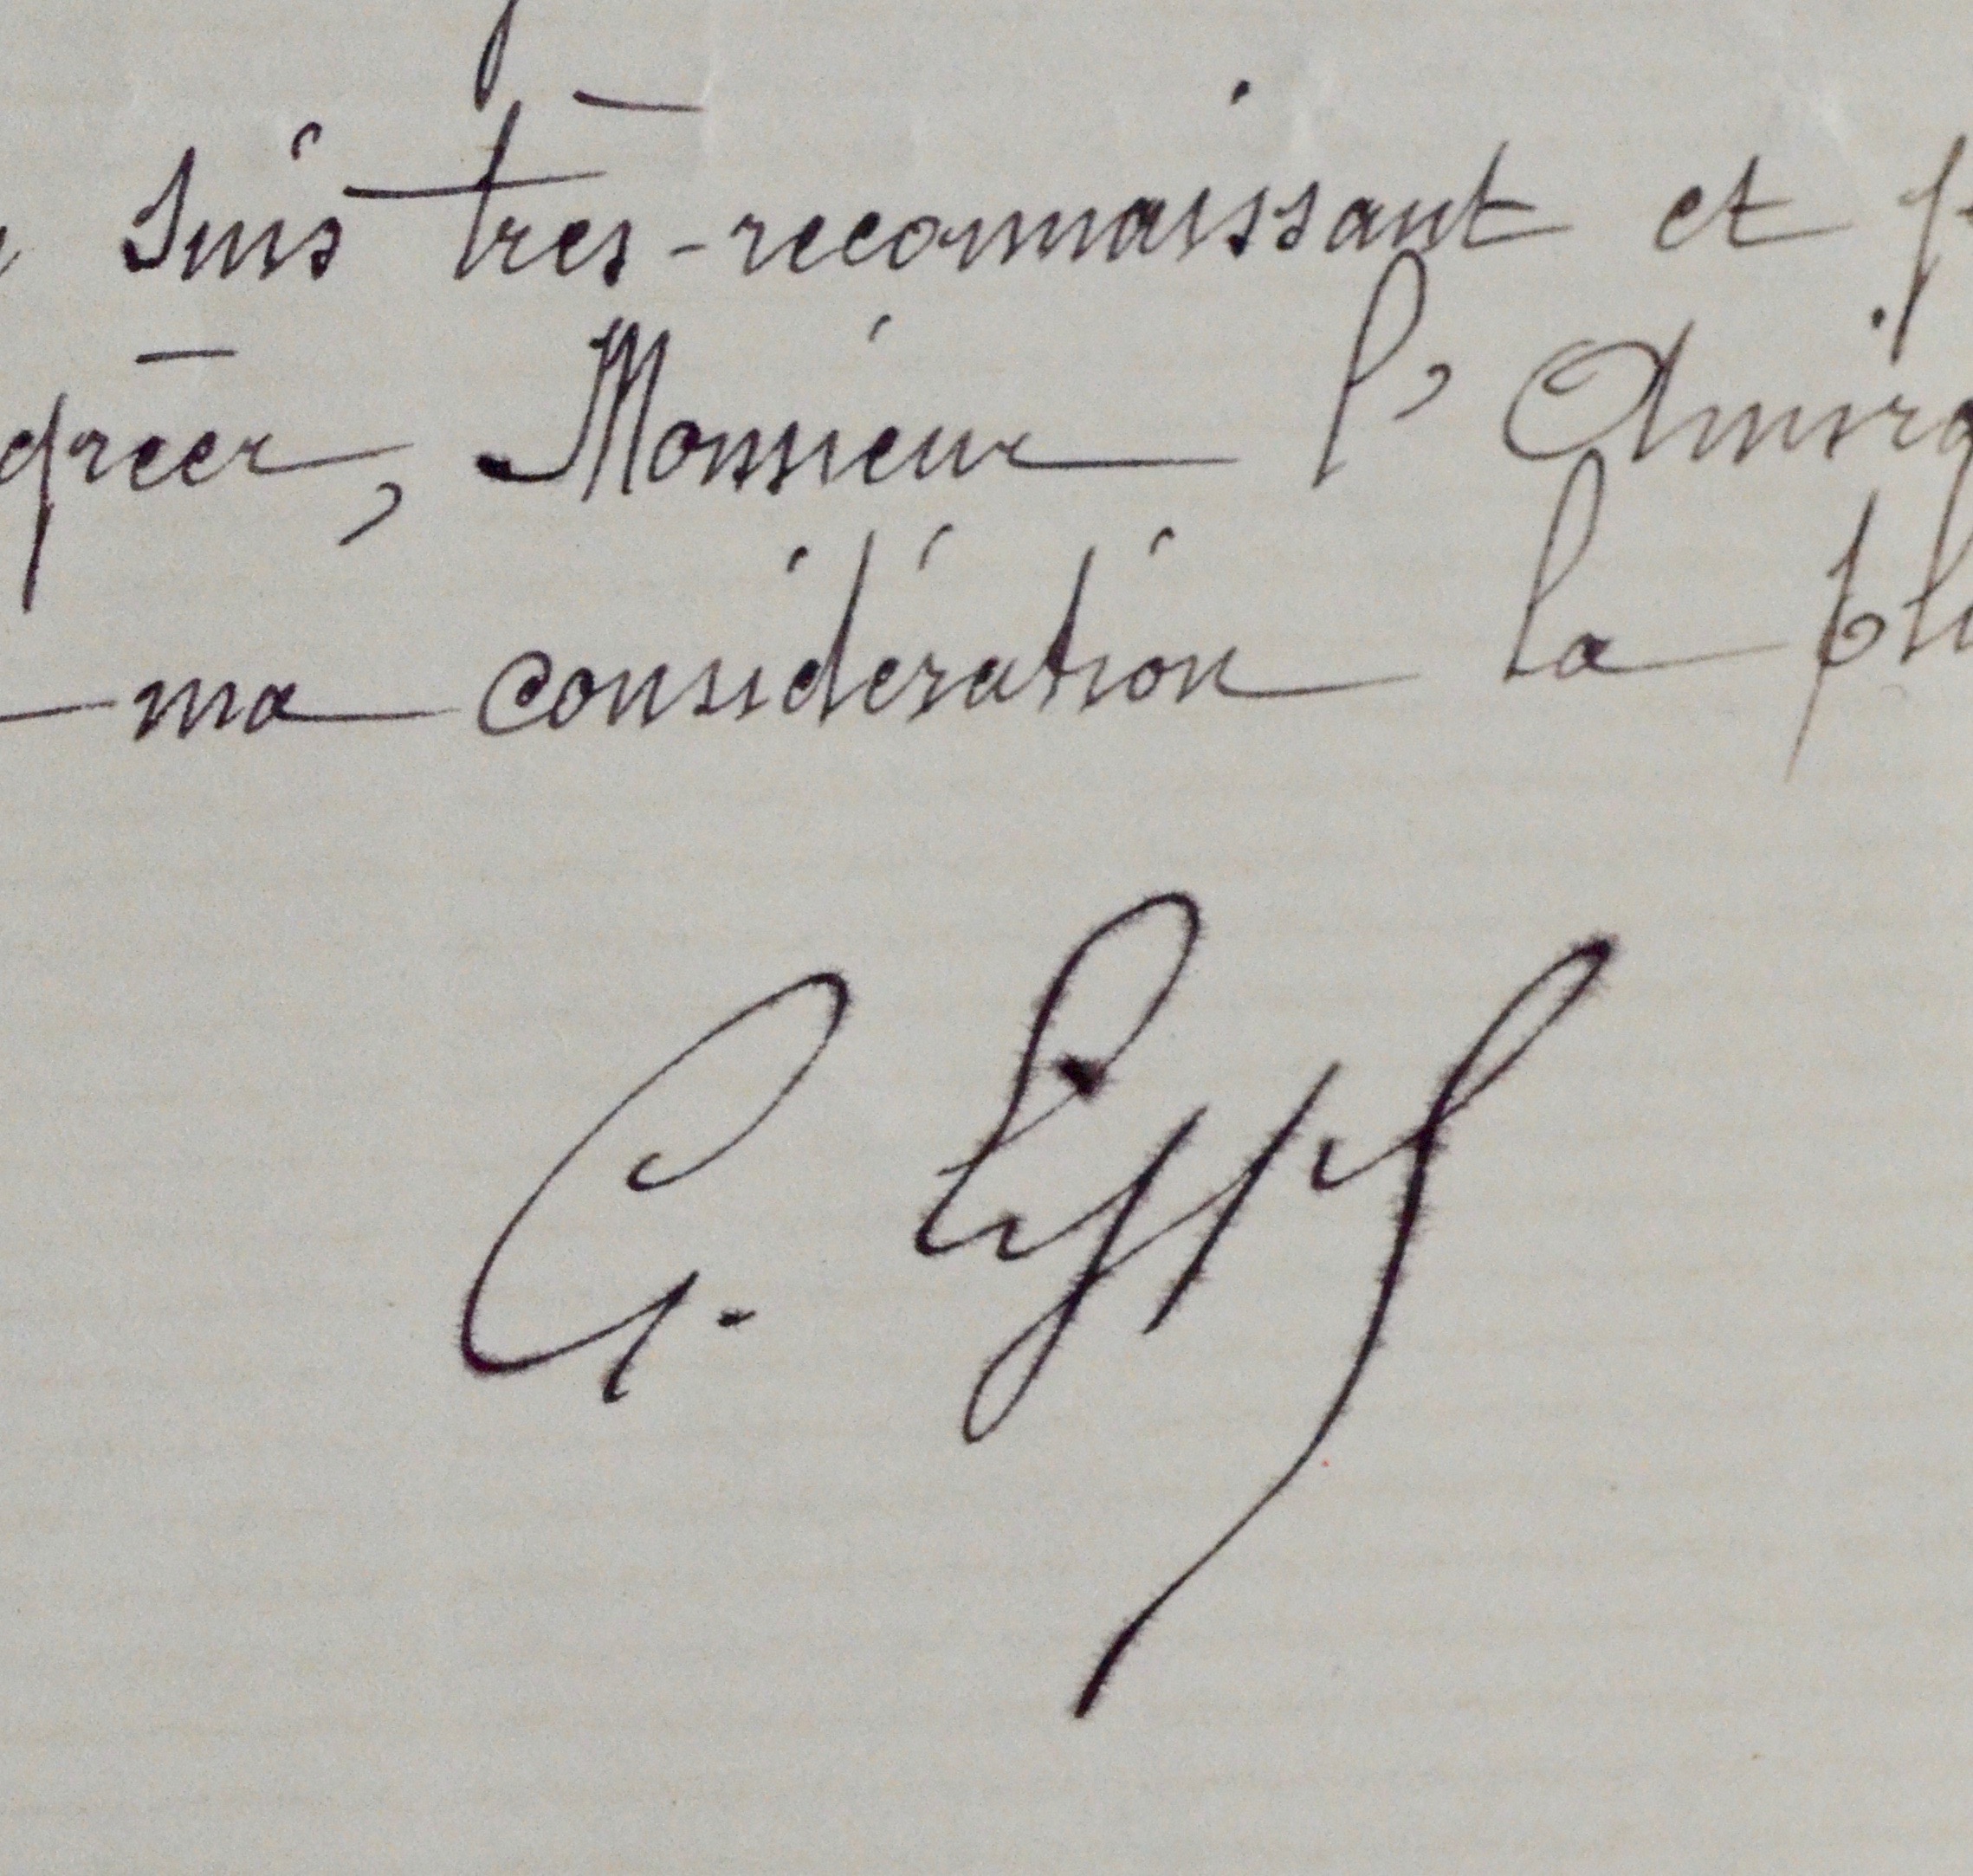 suis très-reconnaissant et
gréer, Monsieur l'Amira
ma considération la plu
G. Eiffel